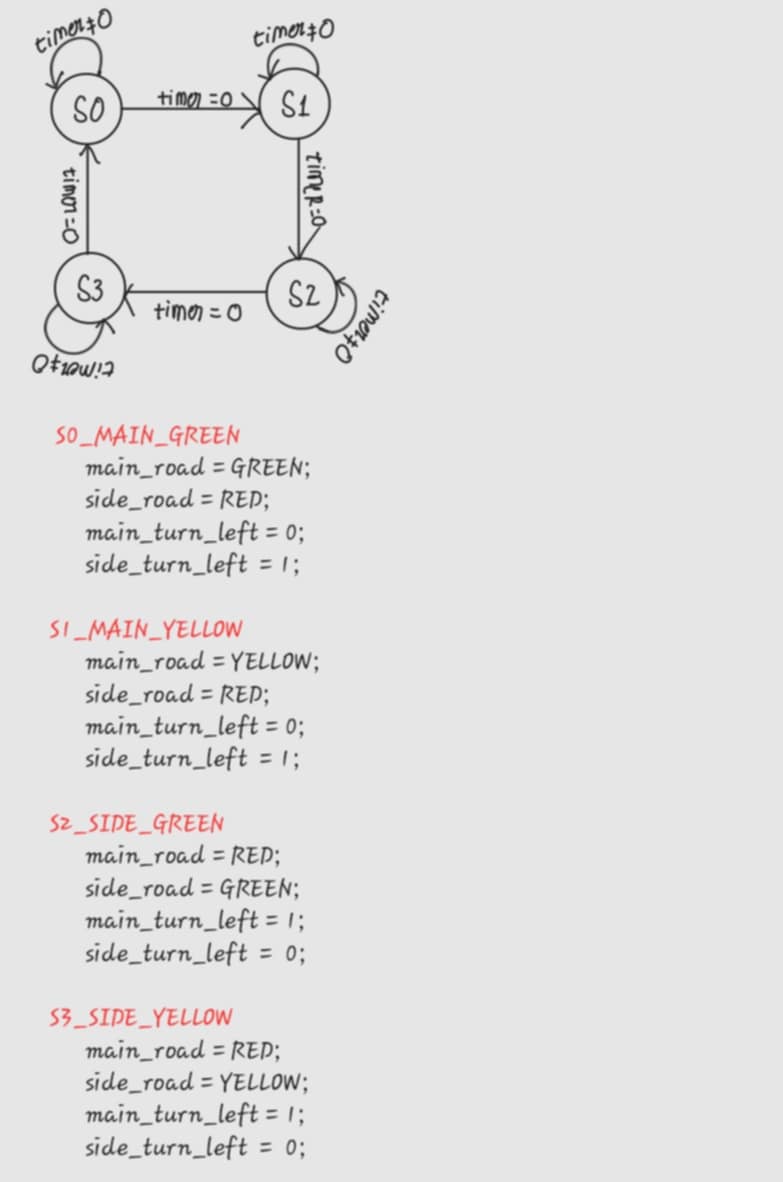 timer≠0
timer≠0
S0
timer=0
S1
timer=0
timer=0
S3
S2
timer=0
timer≠0
timer≠0
S0_MAIN_GREEN
main_road = GREEN;
side_road = RED;
main_turn_left = 0;
side_turn_left = 1;
S1_MAIN_YELLOW
main_road = YELLOW;
side_road = RED;
main_turn_left = 0;
side_turn_left = 1;
S2_SIDE_GREEN
main_road = RED;
side_road = GREEN;
main_turn_left = 1;
side_turn_left = 0;
S3_SIDE_YELLOW
main_road = RED;
side_road = YELLOW;
main_turn_left = 1;
side_turn_left = 0;